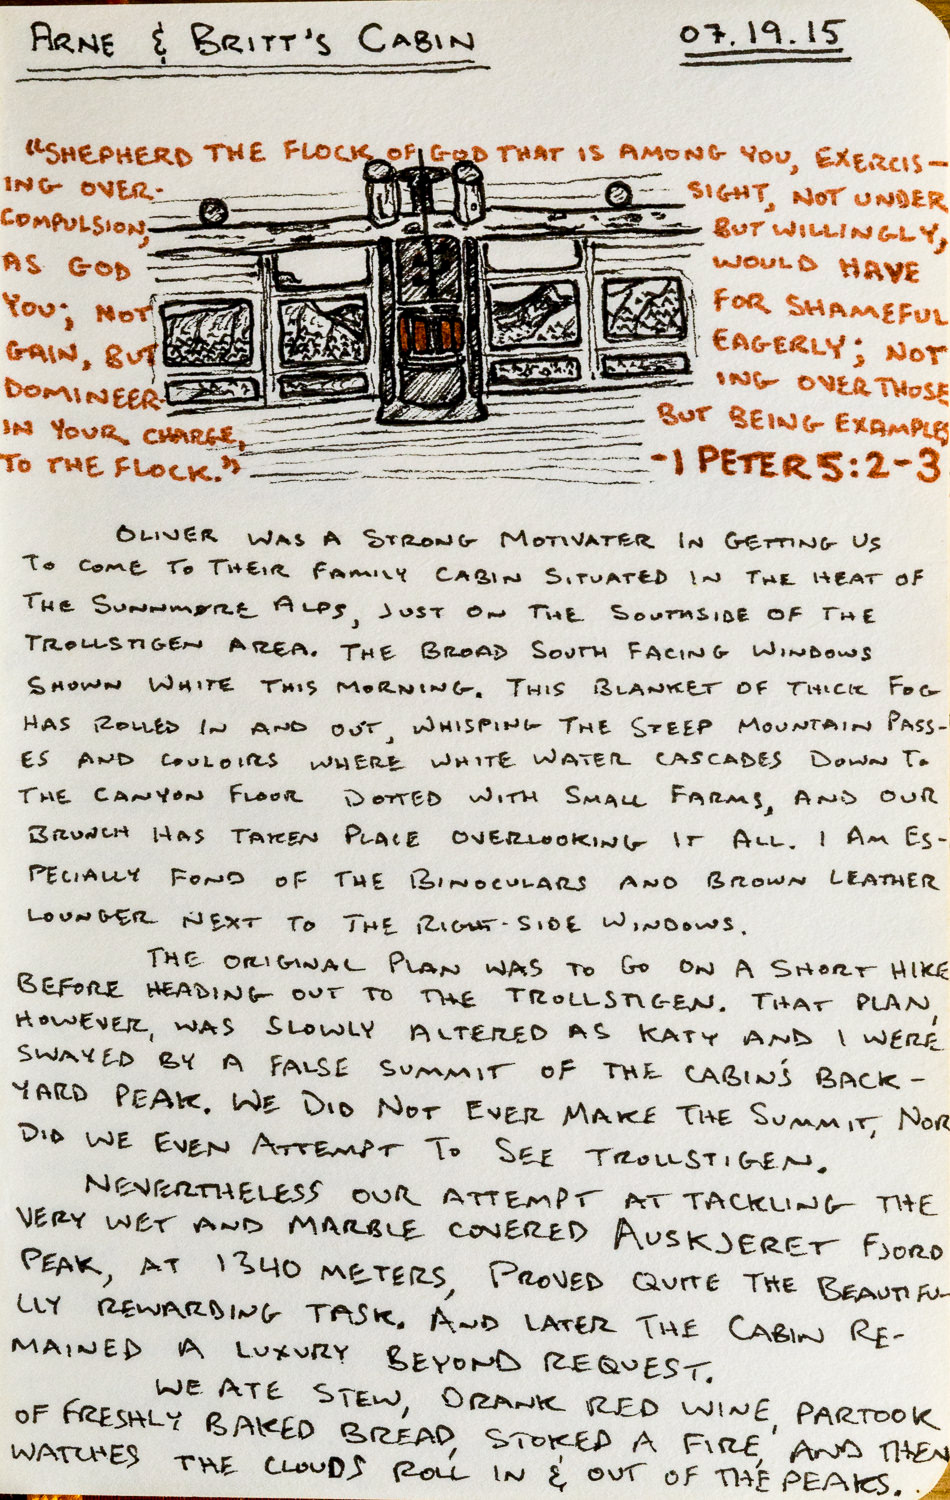 ARNE & BRITT'S CABIN 07.19.15
"SHEPHERD THE FLOCK OF GOD THAT IS AMONG YOU, EXERCIS-
ING OVER- SIGHT, NOT UNDER
COMPULSION, BUT WILLINGLY,
AS GOD WOULD HAVE
YOU; NOT FOR SHAMEFUL
GAIN, BUT EAGERLY; NOT
DOMINEER- ING OVER THOSE
IN YOUR CHARGE, BUT BEING EXAMPLES
TO THE FLOCK." -1 PETER 5:2-3
OLIVER WAS A STRONG MOTIVATER IN GETTING US
TO COME TO THEIR FAMILY CABIN SITUATED IN THE HEAT OF
THE SUNNMØRE ALPS, JUST ON THE SOUTHSIDE OF THE
TROLLSTIGEN AREA. THE BROAD SOUTH FACING WINDOWS
SHOWN WHITE THIS MORNING. THIS BLANKET OF THICK FOG
HAS ROLLED IN AND OUT, WHISPING THE STEEP MOUNTAIN PASS-
ES AND COULOIRS WHERE WHITE WATER CASCADES DOWN TO
THE CANYON FLOOR DOTTED WITH SMALL FARMS, AND OUR
BRUNCH HAS TAKEN PLACE OVERLOOKING IT ALL. I AM ES-
PECIALLY FOND OF THE BINOCULARS AND BROWN LEATHER
LOUNGER NEXT TO THE RIGHT-SIDE WINDOWS.
THE ORIGINAL PLAN WAS TO GO ON A SHORT HIKE
BEFORE HEADING OUT TO THE TROLLSTIGEN. THAT PLAN,
HOWEVER, WAS SLOWLY ALTERED AS KATY AND I WERE
SWAYED BY A FALSE SUMMIT OF THE CABIN'S BACK-
YARD PEAK. WE DID NOT EVER MAKE THE SUMMIT, NOR
DID WE EVEN ATTEMPT TO SEE TROLLSTIGEN.
NEVERTHELESS OUR ATTEMPT AT TACKLING THE
VERY WET AND MARBLE COVERED AUSKJERET FJORD
PEAK, AT 1340 METERS, PROVED QUITE THE BEAUTIFU-
LLY REWARDING TASK. AND LATER THE CABIN RE-
MAINED A LUXURY BEYOND REQUEST.
WE ATE STEW, DRANK RED WINE, PARTOOK
OF FRESHLY BAKED BREAD, STOKED A FIRE, AND THEN
WATCHES THE CLOUDS ROLL IN & OUT OF THE PEAKS.